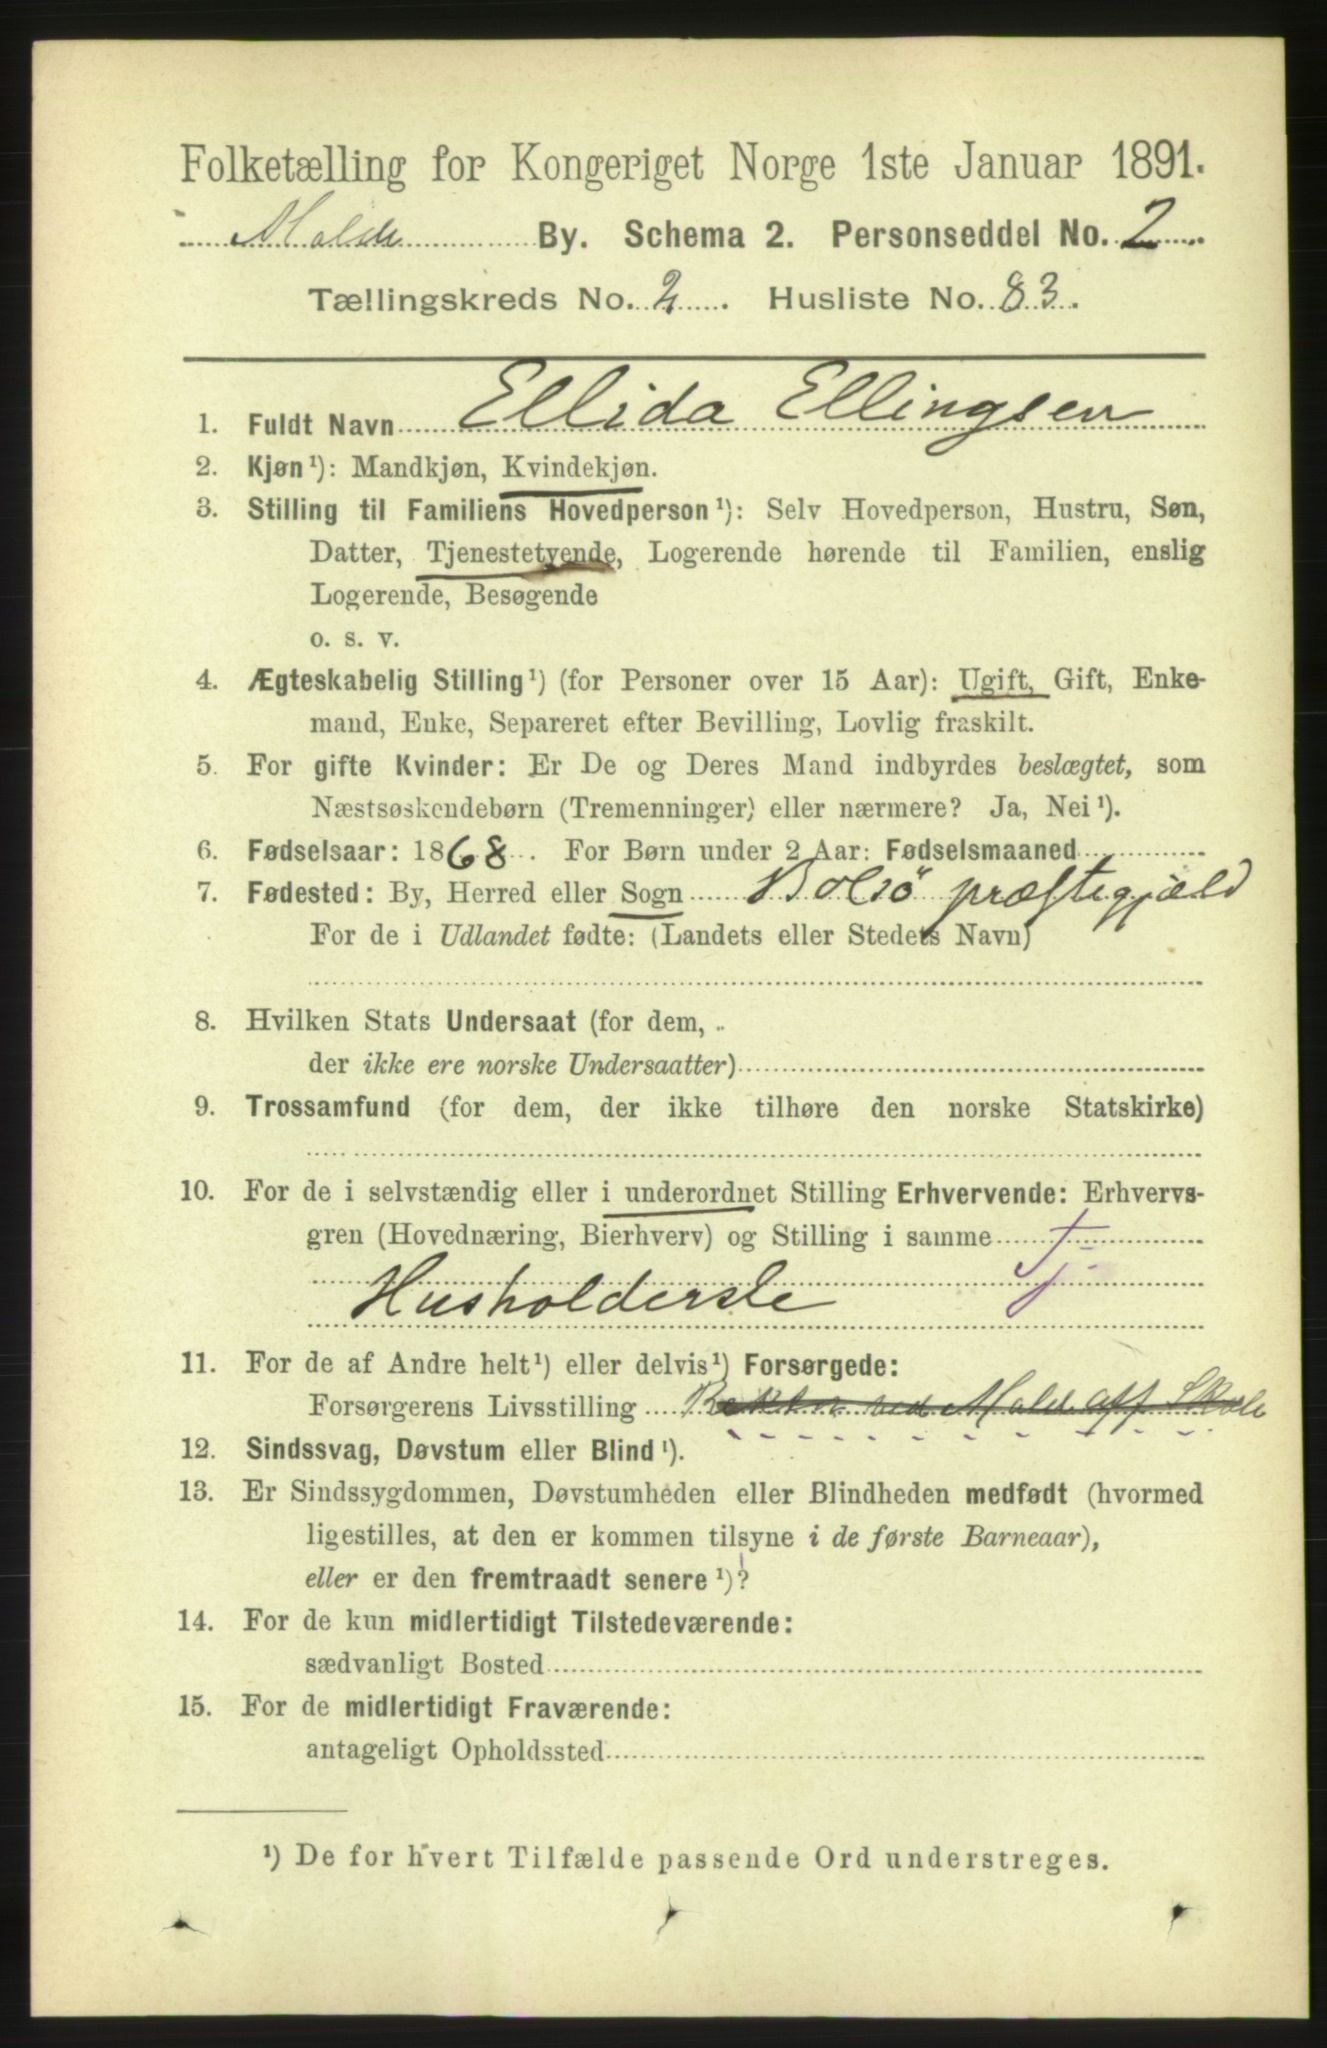 Folketælling for Kongeriget Norge 1ste Januar 1891.
Molde By. Schema 2. Personseddel No. 2
Tællingskreds No. 2. Husliste No. 83.
1. Fuldt Navn Ellida Ellingsen
2. Kjøn¹): Mandkjøn, Kvindekjøn.
3. Stilling til Familiens Hovedperson¹): Selv Hovedperson, Hustru, Søn,
Datter, Tjenestetyende, Logerende hørende til Familien, enslig
Logerende, Besøgende
o. s. v.
4. Ægteskabelig Stilling¹) (for Personer over 15 Aar): Ugift, Gift, Enke-
mand, Enke, Separeret efter Bevilling, Lovlig fraskilt.
5. For gifte Kvinder: Er De og Deres Mand indbyrdes beslægtet, som
Næstsøskendebørn (Tremenninger) eller nærmere? Ja, Nei¹).
6. Fødselsaar: 1868. For Børn under 2 Aar: Fødselsmaaned
7. Fødested: By, Herred eller Sogn Bolsö præstegjæld
For de i Udlandet fødte: (Landets eller Stedets Navn)
8. Hvilken Stats Undersaat (for dem,
der ikke ere norske Undersaatter)
9. Trossamfund (for dem, der ikke tilhøre den norske Statskirke)
10. For de i selvstændig eller i underordnet Stilling Erhvervende: Erhvervs-
gren (Hovednæring, Bierhverv) og Stilling i samme Tj
Husholderske
11. For de af Andre helt¹) eller delvis¹) Forsørgede:
Forsørgerens Livsstilling ved Molde
12. Sindssvag, Døvstum eller Blind¹).
13. Er Sindssygdommen, Døvstumheden eller Blindheden medfødt (hvormed
ligestilles, at den er kommen tilsyne i de første Barneaar),
eller er den fremtraadt senere¹)?
14. For de kun midlertidigt Tilstedeværende:
sædvanligt Bosted
15. For de midlertidigt Fraværende:
antageligt Opholdssted
¹) De for hvert Tilfælde passende Ord understreges.